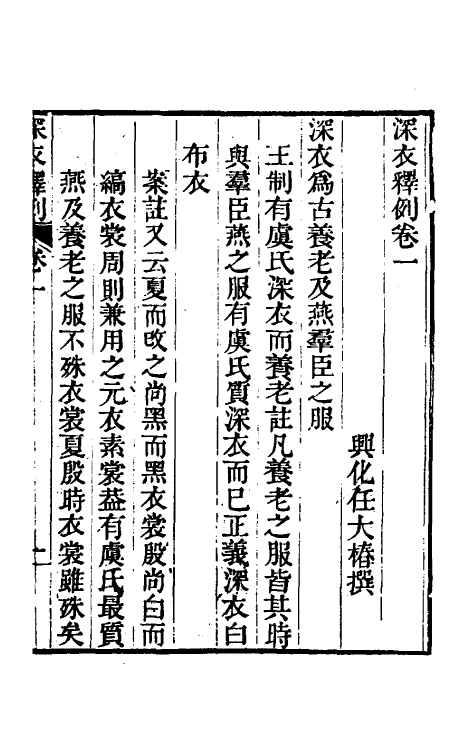 深衣釋例卷一
興化任大椿撰
深衣爲古養老及燕羣臣之服
王制有虞氏深衣而養老註凡養老之服皆其時
與羣臣燕之服有虞氏質深衣而已正義深衣白
布衣
案註又云夏而改之尚黑而黑衣裳殷尚白而
縞衣裳周則兼用之元衣素裳葢有虞氏最質
燕及養老之服不殊衣裳夏殷時衣裳雖殊矣
深衣釋例 卷一 一